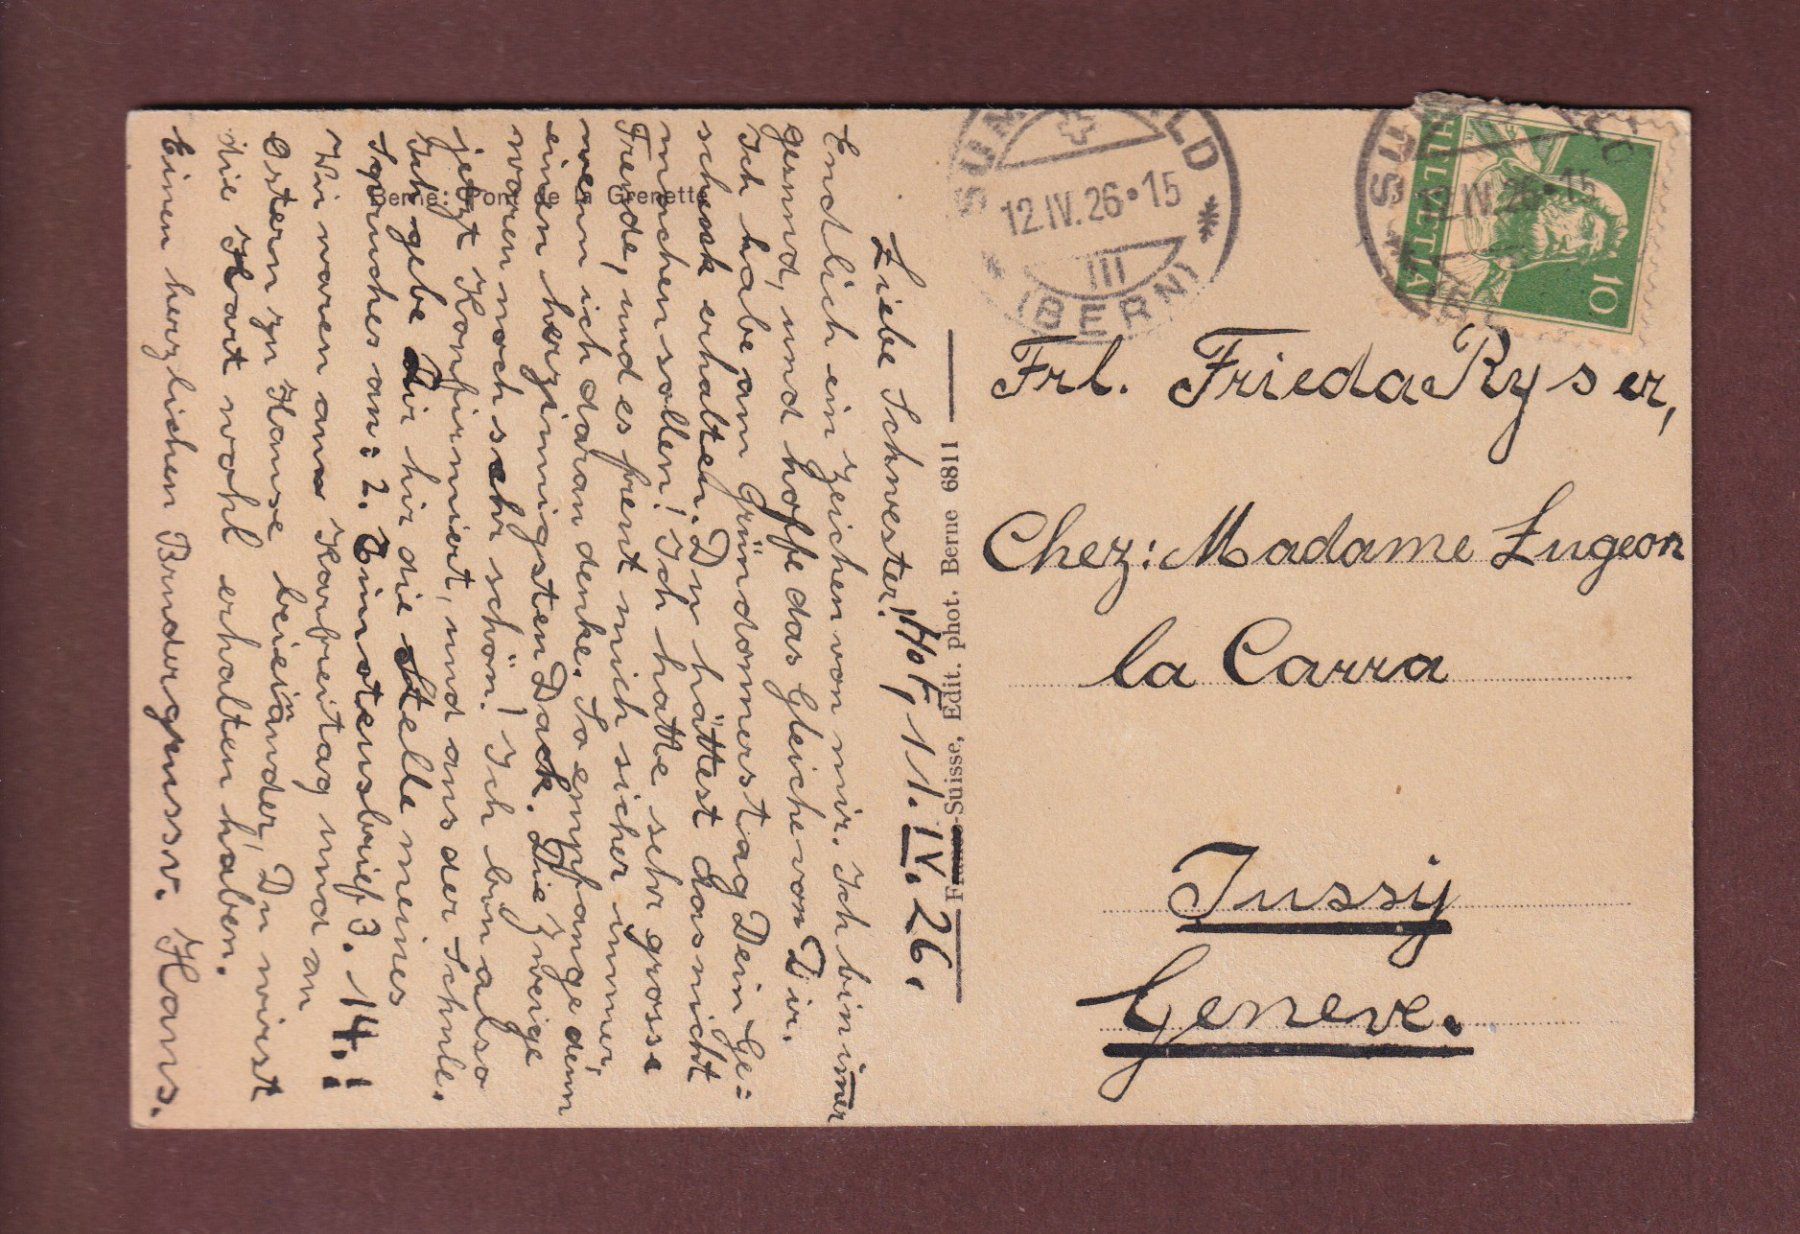 Hof, 11. IV. 26.
Liebe Schwester!
Endlich ein Zeichen von mir. Ich bin immer
gesund, und hoffe das Gleiche von Dir.
Ich habe am Gründonnerstag Dein Ge=
schenk erhalten. Du hättest das nicht
machen sollen! Ich hatte sehr grosse
Freude, und es freut mich sicher immer,
wenn ich daran denke. So empfange denn
einen herzinnigsten Dack. Die Zweige
waren noch sehr schön! Ich bin also
jetzt Konfirmiert, und aus der Schule.
Ich gebe Dir hir die Stelle meines
Spruches an: 2. Timoteusbrief 3. 14.!
Wir waren am Karfreitag und an
Ostern zu Hause beieinander, Du wirst
die Kart wohl erhalten haben.
Einen herzlichen Brudergruss v. Hans.
Berne: Pont de la Grenette
Franco-Suisse, Edit. phot. Berne 6811
SUMISWALD
12.IV.26•15
III
(BERN)
HELVETIA
10
12.IV.26•15
Frl. Frieda Ryser,
Chez: Madame Lugeon
la Carra
Jussy
Geneve.